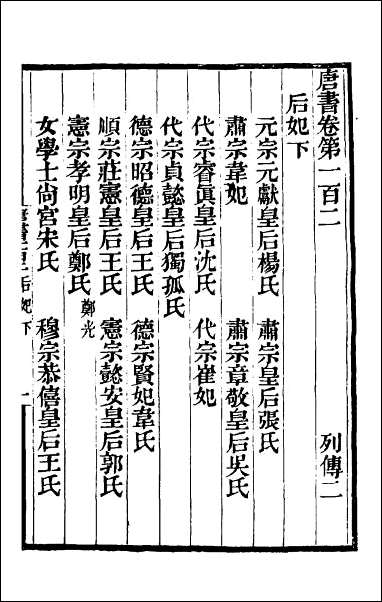 唐書卷第一百二 列傳二
后妃下
元宗元獻皇后楊氏 肅宗皇后張氏
肅宗韋妃 肅宗章敬皇后吳氏
代宗睿眞皇后沈氏 代宗崔妃
代宗貞懿皇后獨孤氏
德宗昭德皇后王氏 德宗賢妃韋氏
順宗莊憲皇后王氏 憲宗懿安皇后郭氏
憲宗孝明皇后鄭氏 鄭光
女學士尚宮宋氏 穆宗恭僖皇后王氏
后妃下
一